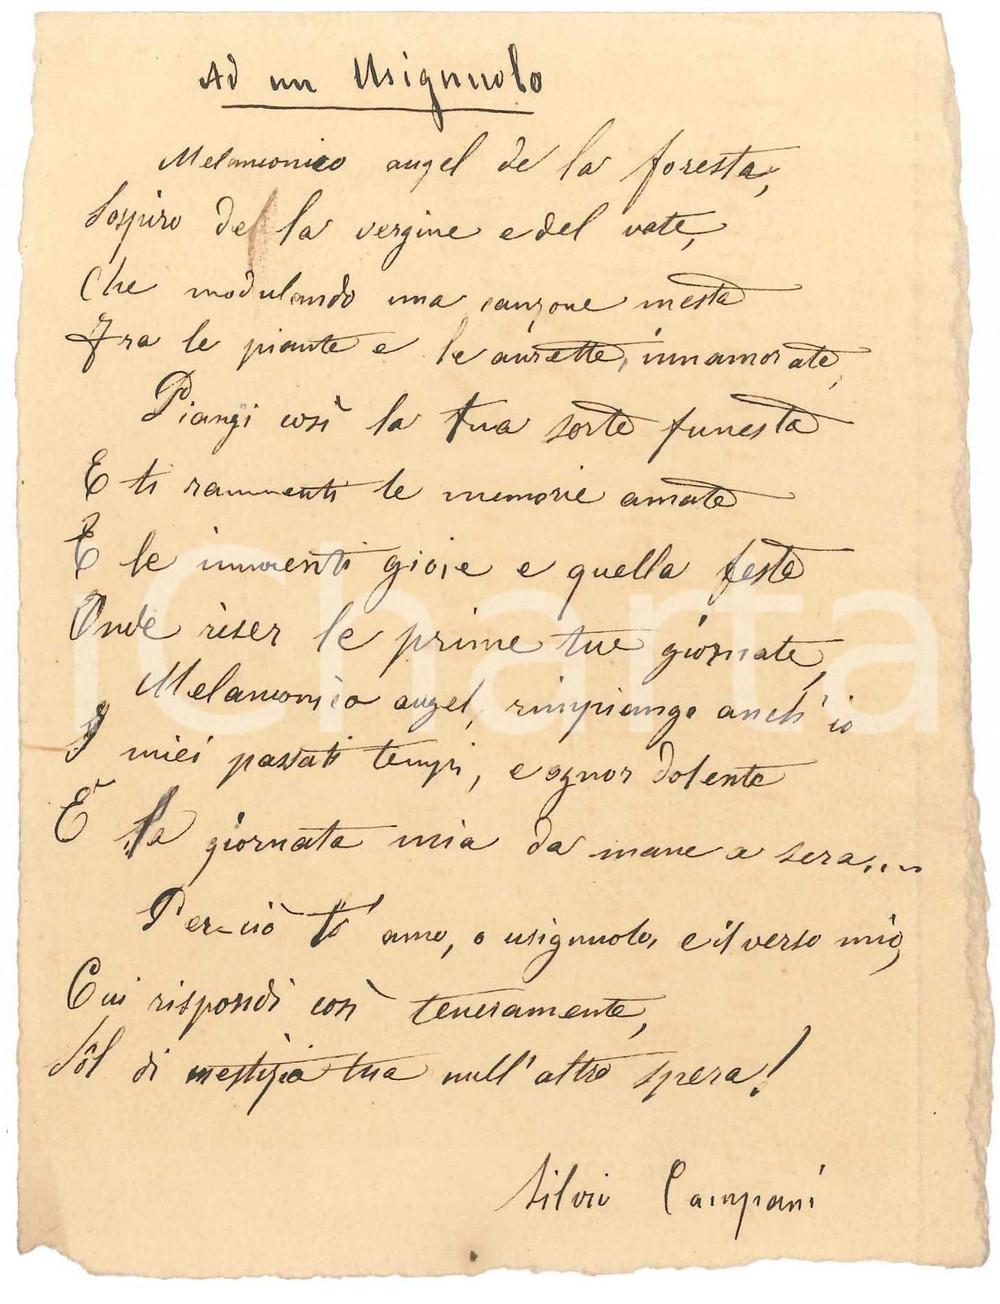 Ad un Usignuolo
Melanconico augel de la foresta,
Sospiro de la vergine e del vate,
Che modulando una canzone mesta
Fra le piante e le aurette innamorate,
Piangi così la tua sorte funesta
E ti rammenti le memorie amate
E le innocenti gioie e quella festa
Onde riser le prime tue giornate,
Melanconico augel, rimpiango anch'io
I miei passati tempi, e ognor dolente
È la giornata mia da mane a sera....
Per-ciò t'amo, o usignuolo, e il verso mio,
Cui rispondi così teneramente,
Sol di mestizia tua null'altro spera!
Silvio Campani
iCharta